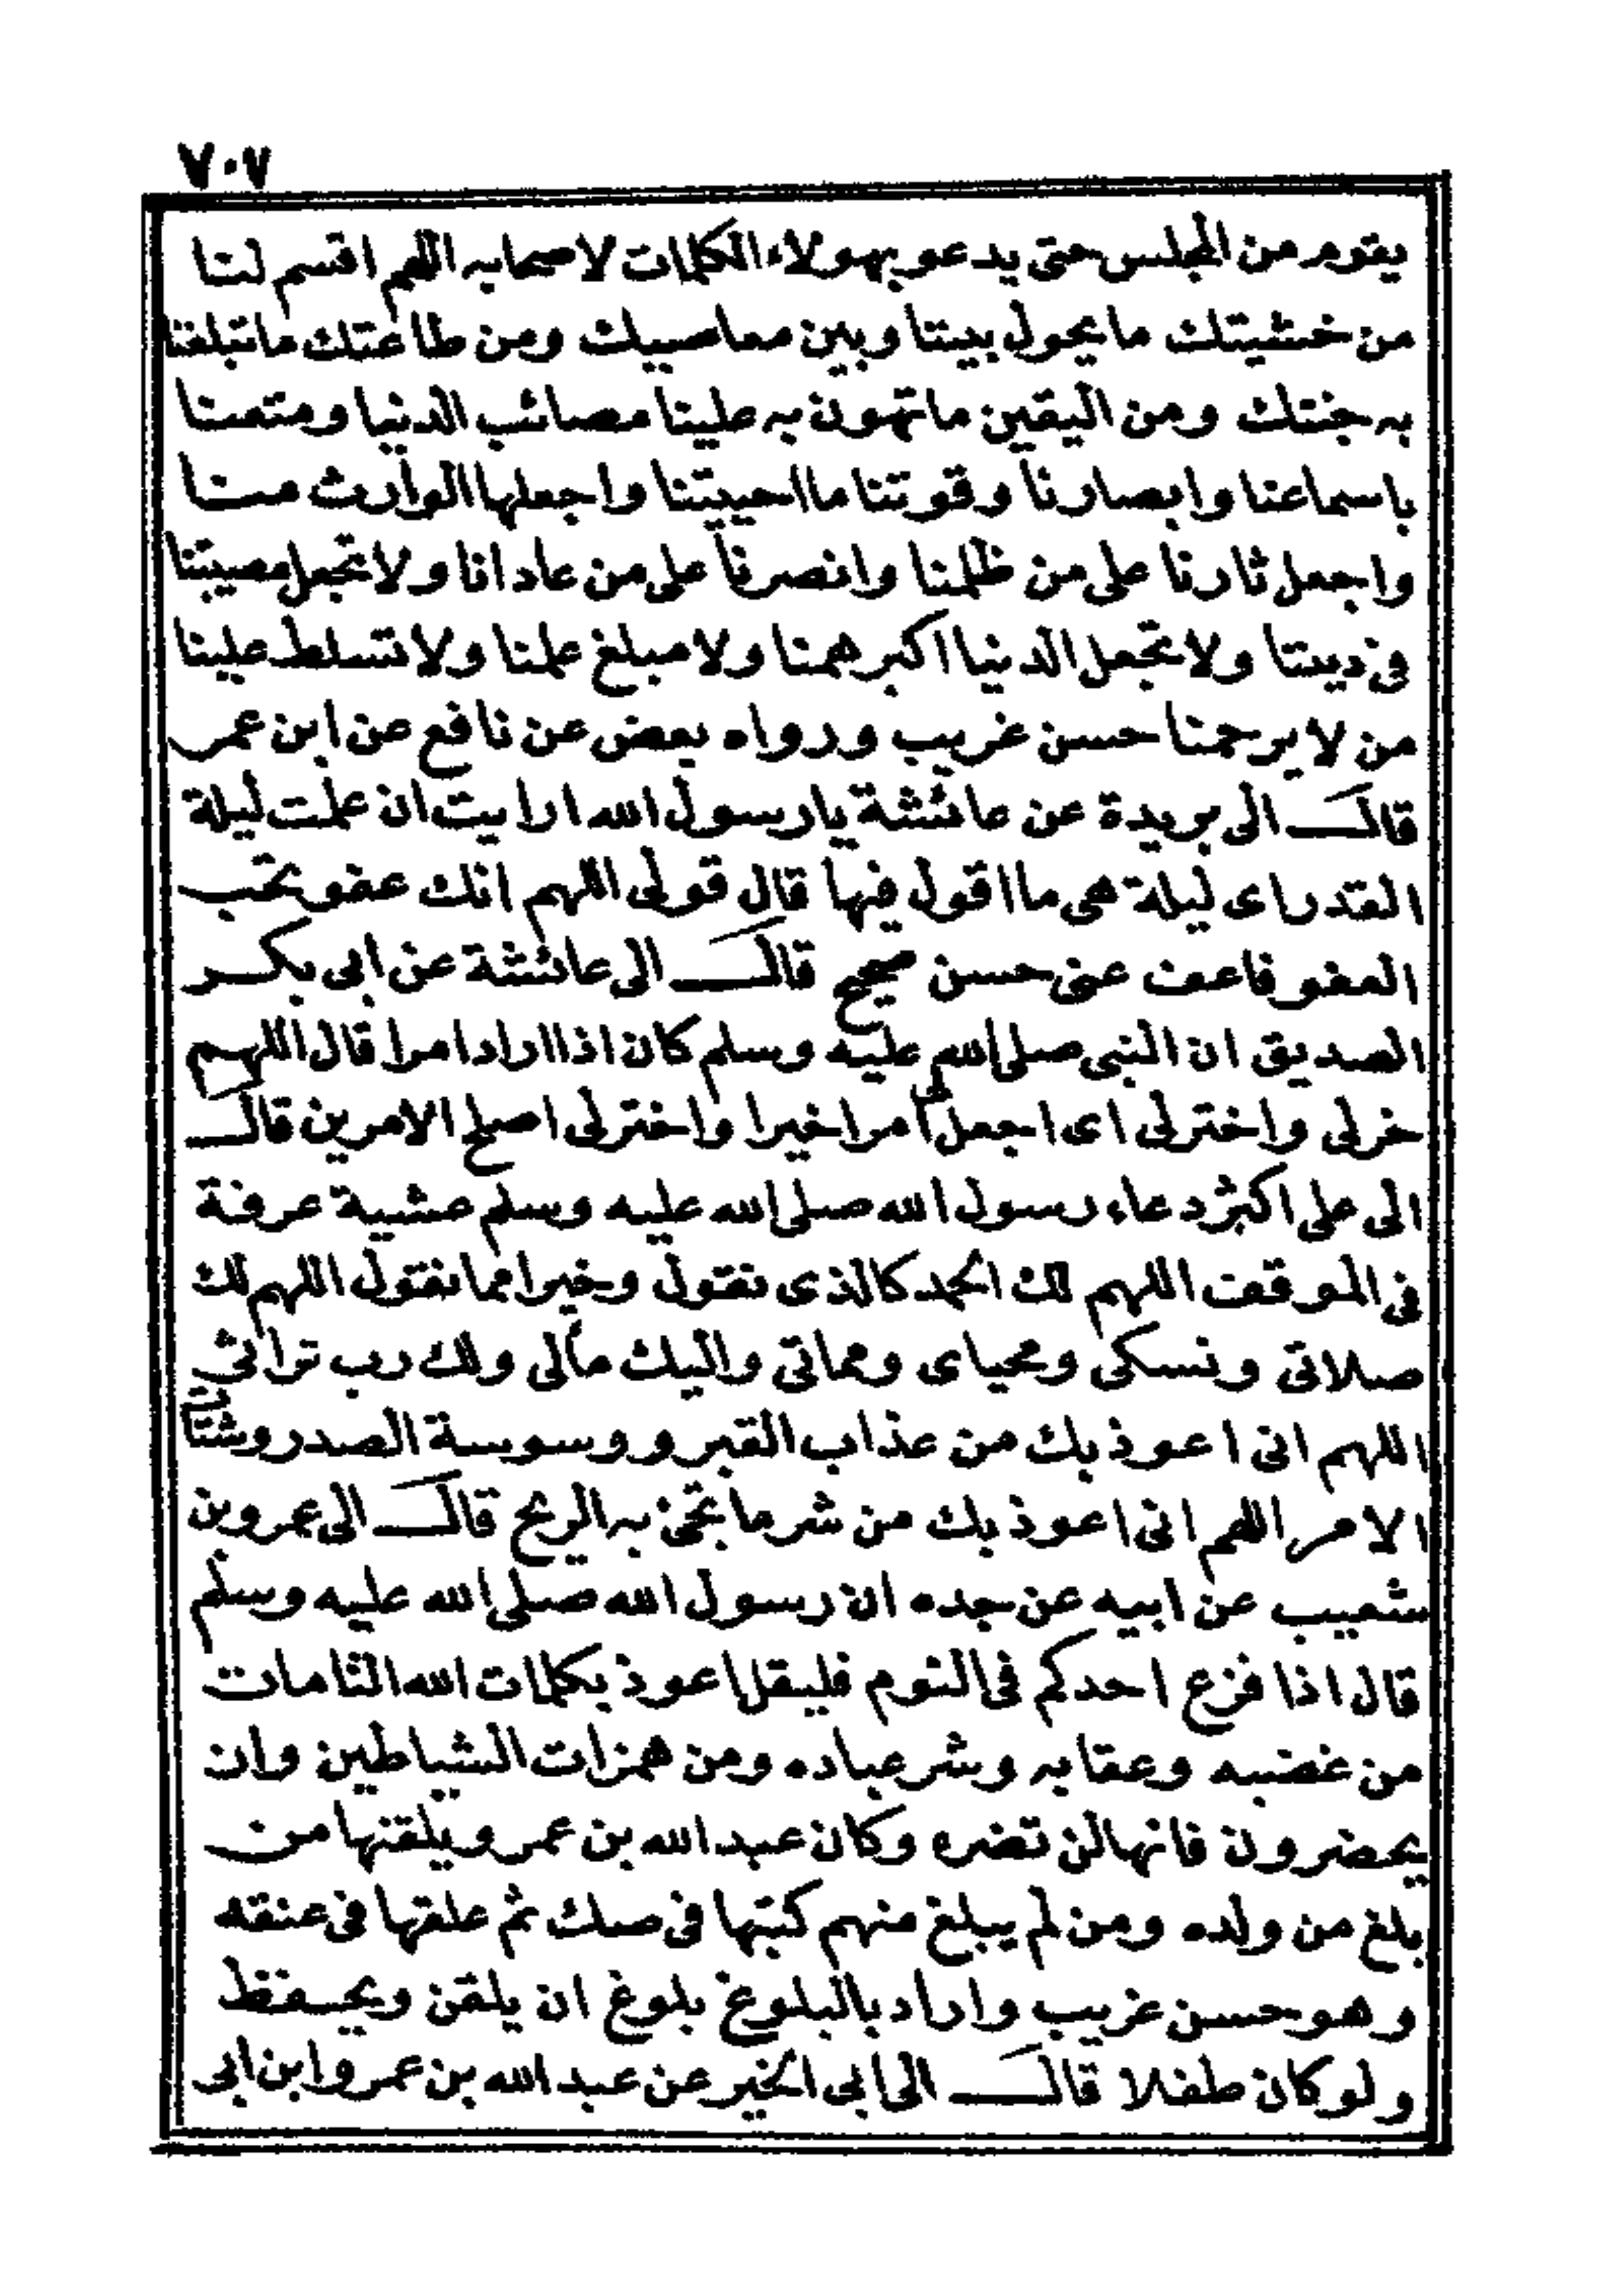 ٧٠٧
يقوم من المجلس حتى يدعو بهولاء الكلمات لاصحابه اللهم اقسم لنا
من خشيتك ما يحول بيننا وبين معاصيك ومن طاعتك ما تبلغنا
به جنتك ومن اليقين ما تهون به علينا مصائب الدنيا ومتعنا
باسماعنا وابصارنا وقوتنا ما احييتنا واجعلها الوارث منا
واجعل ثارنا على من ظلمنا وانصرنا على من عادانا ولا تجعل مصيبتنا
فى ديننا ولا تجعل الدنيا اكبر همنا ولا مبلغ علمنا ولا تسلط علينا
من لا يرحمنا حسن غريب ورواه بعض عن نافع عن ابن عمر
قال الى بريدة عن عائشة يا رسول الله ارايت ان علمت ليلة
القدر اى ليلة هى ما اقول فيها قال قولى اللهم انك عفو تحب
العفو فاعف عنى حسن صحيح قال الى عائشة عن ابى بكر
الصديق ان النبى صلى الله عليه وسلم كان اذا اراد امرا قال اللهم
خرلى واخترلى اى اجعل لى امرا خيرا واخترلى اصلح الامرين قال
الى على اكثر دعاء رسول الله صلى الله عليه وسلم عشية عرفة
فى الموقف اللهم لك الحمد كالذى نقول وخيرا مما نقول اللهم لك
صلاتى ونسكى ومحياى ومماتى واليك مآلى ولك رب تراثى
اللهم انى اعوذ بك من عذاب القبر ووسوسة الصدر وشتات
الامر اللهم انى اعوذ بك من شر ما تجئ به الريح قال الى عمرو بن
شعيب عن ابيه عن جده ان رسول الله صلى الله عليه وسلم
قال اذا فزع احدكم فى النوم فليقل اعوذ بكلمات الله التامات
من غضبه وعقابه وشر عباده ومن همزات الشياطين وان
يحضرون فانها لن تضره وكان عبد الله بن عمرو يلقنها من
بلغ من ولده ومن لم يبلغ منهم كتبها فى صك ثم علقها فى عنقه
وهو حسن غريب واراد بالبلوغ بلوغ ان يلقن ويحفظ
ولو كان طفلا قال الى ابى الخير عن عبد الله بن عمرو ابن ابى